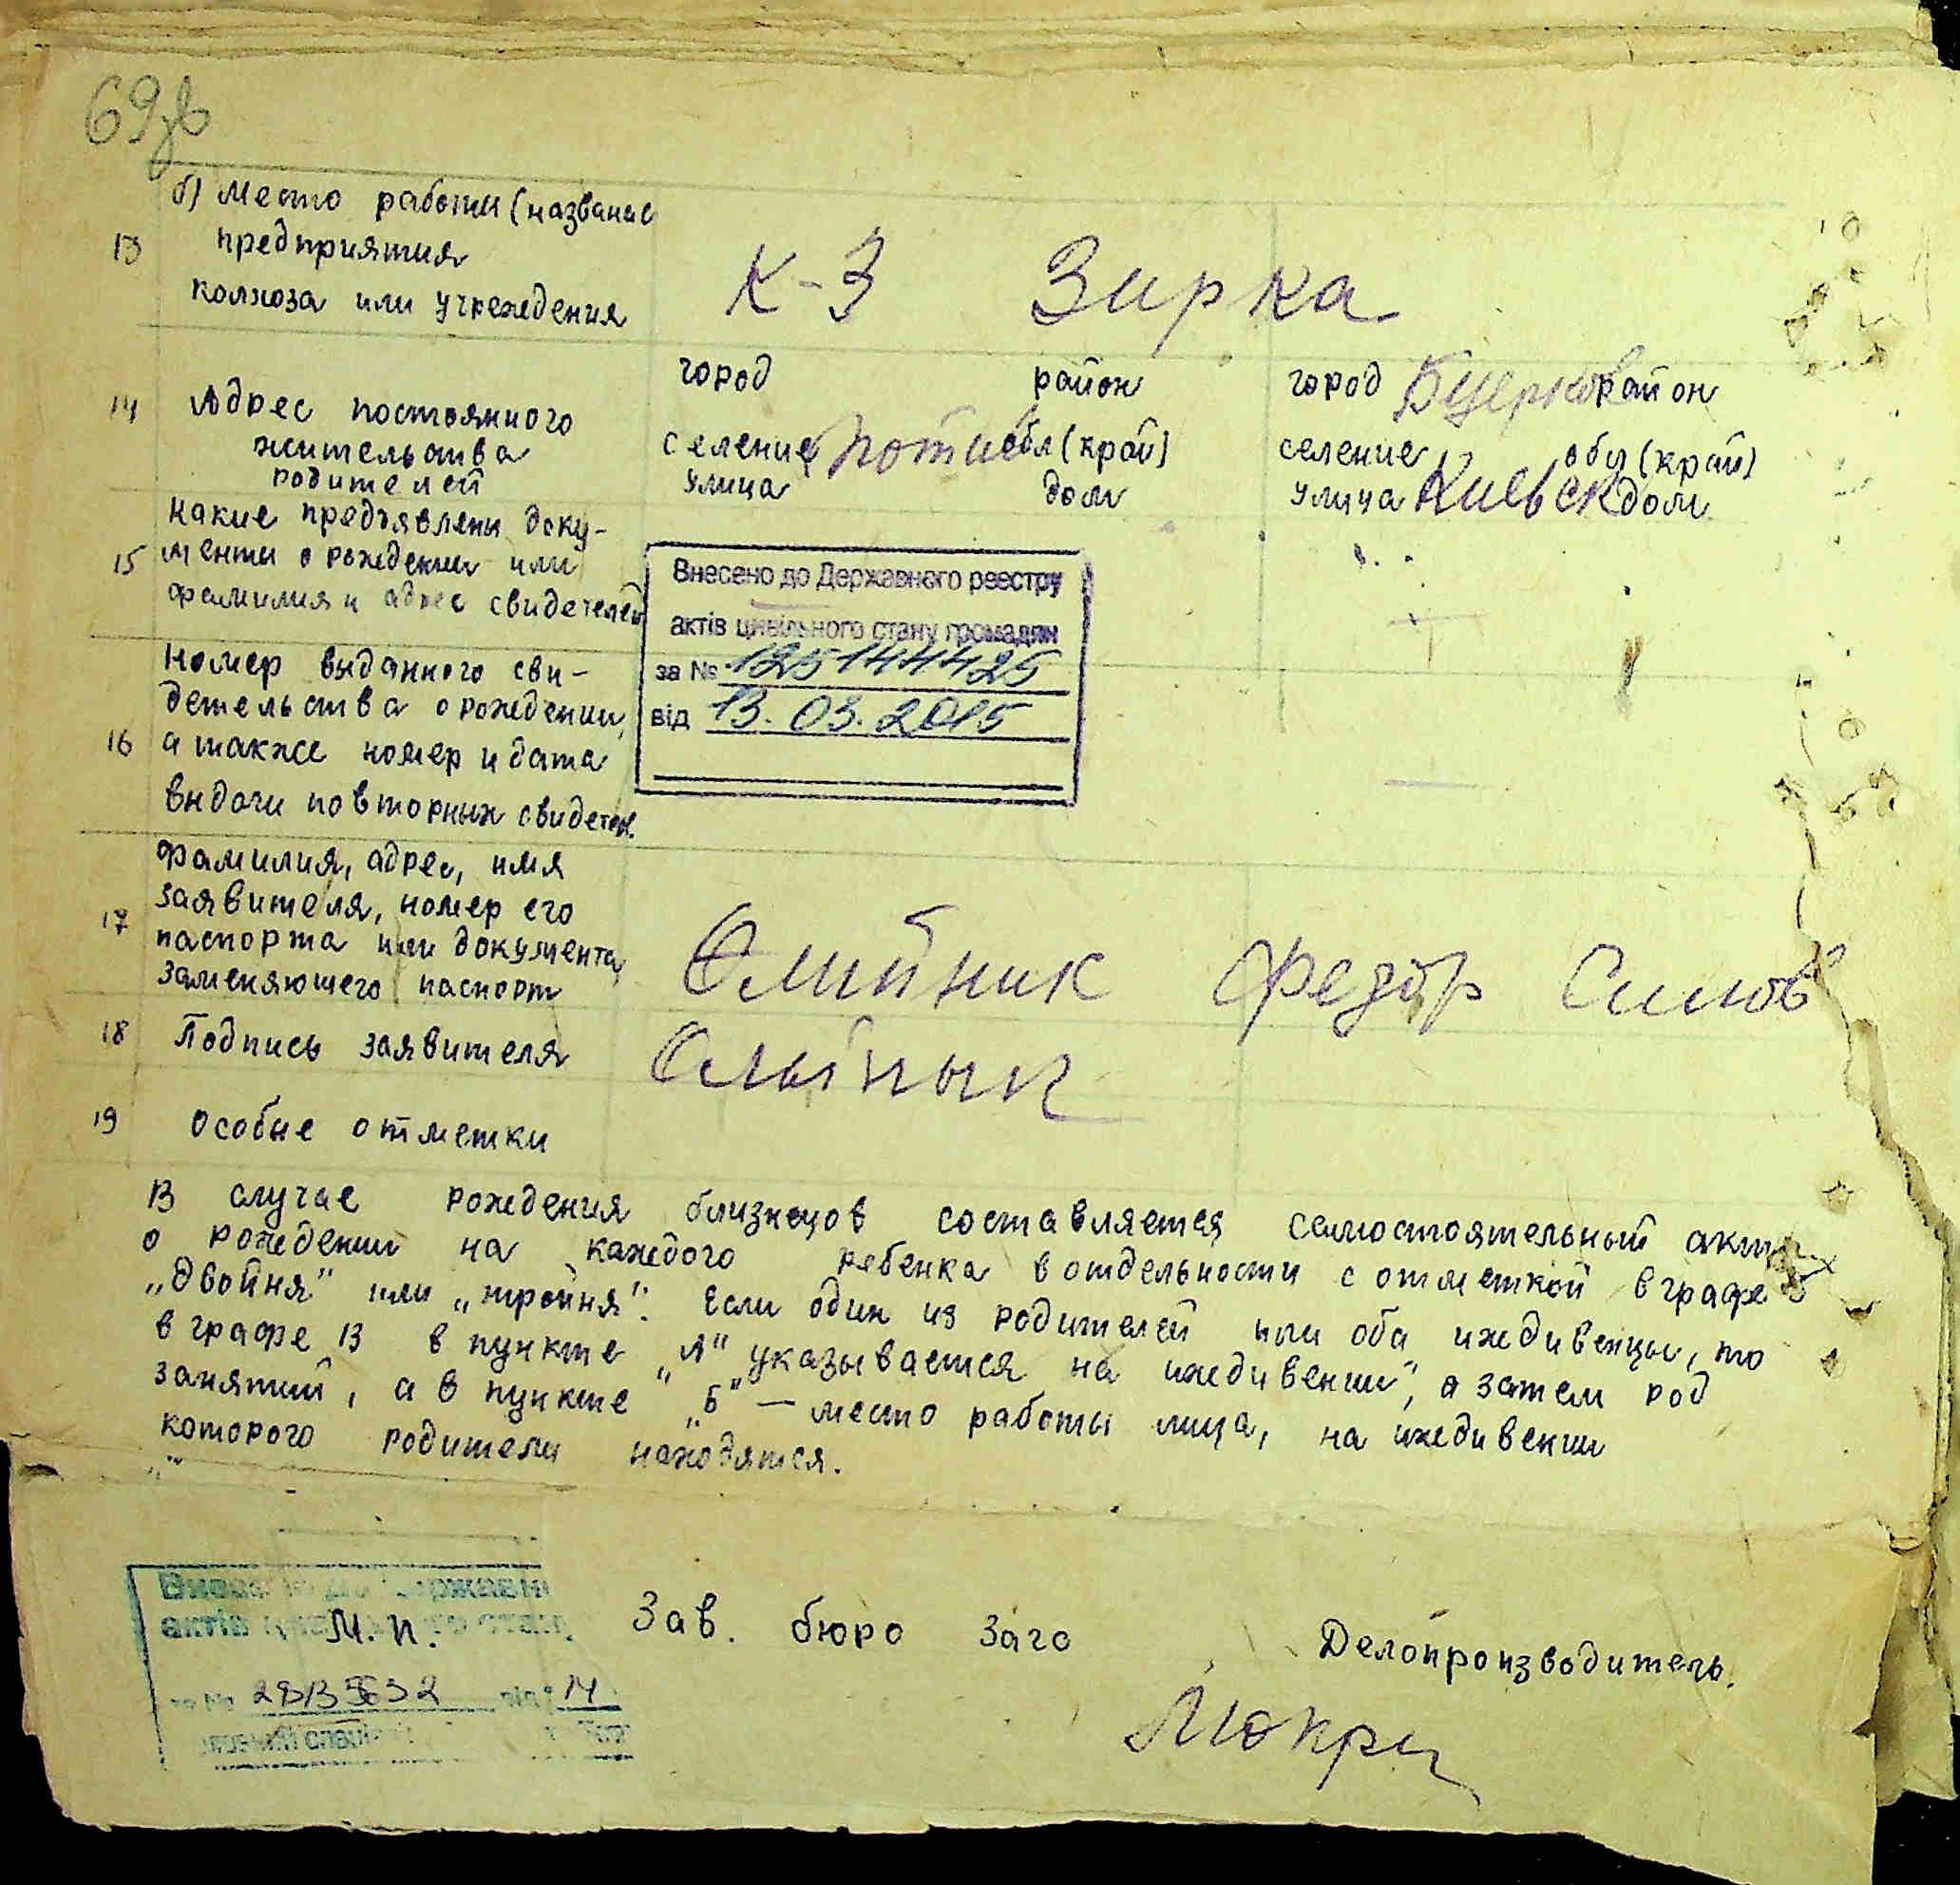 69зв
б) Место работы (название
13 предприятия
колхоза или учреждения
К-З Зирка
14 Адрес постоянного
жительства
родителей
город район
селение обл (край)
улица дом
город район
селение Киевск обл (край)
улица дом
15 Какие предъявлены доку-
менты о рождении или
фамилия и адрес свидетелей
Внесено до Державного реєстру
актів цивільного стану громадян
за № 125144425
від 13.03.2015
16 Номер выданного сви-
детельства о рождении,
а также номер и дата
выдачи повторных свидетел.
17 Фамилия, адрес, имя
заявителя, номер его
паспорта или документа
заменяющего паспорт
Олийник Федор
18 Подпись заявителя
Олыйнык
19 Особые отметки
В случае рождения близнецов составляется самостоятельный акт
о рождении на каждого ребенка в отдельности с отметкой в графе
„Двойня" или „тройня". Если один из родителей или оба иждивенцы, то
в графе 13 в пункте „А" указывается „на иждивении", а затем род
занятий, а в пункте „Б" — место работы лица, на иждивении
которого родители находятся.
М. п.
14
Зав. бюро Загс
Делопроизводитель.